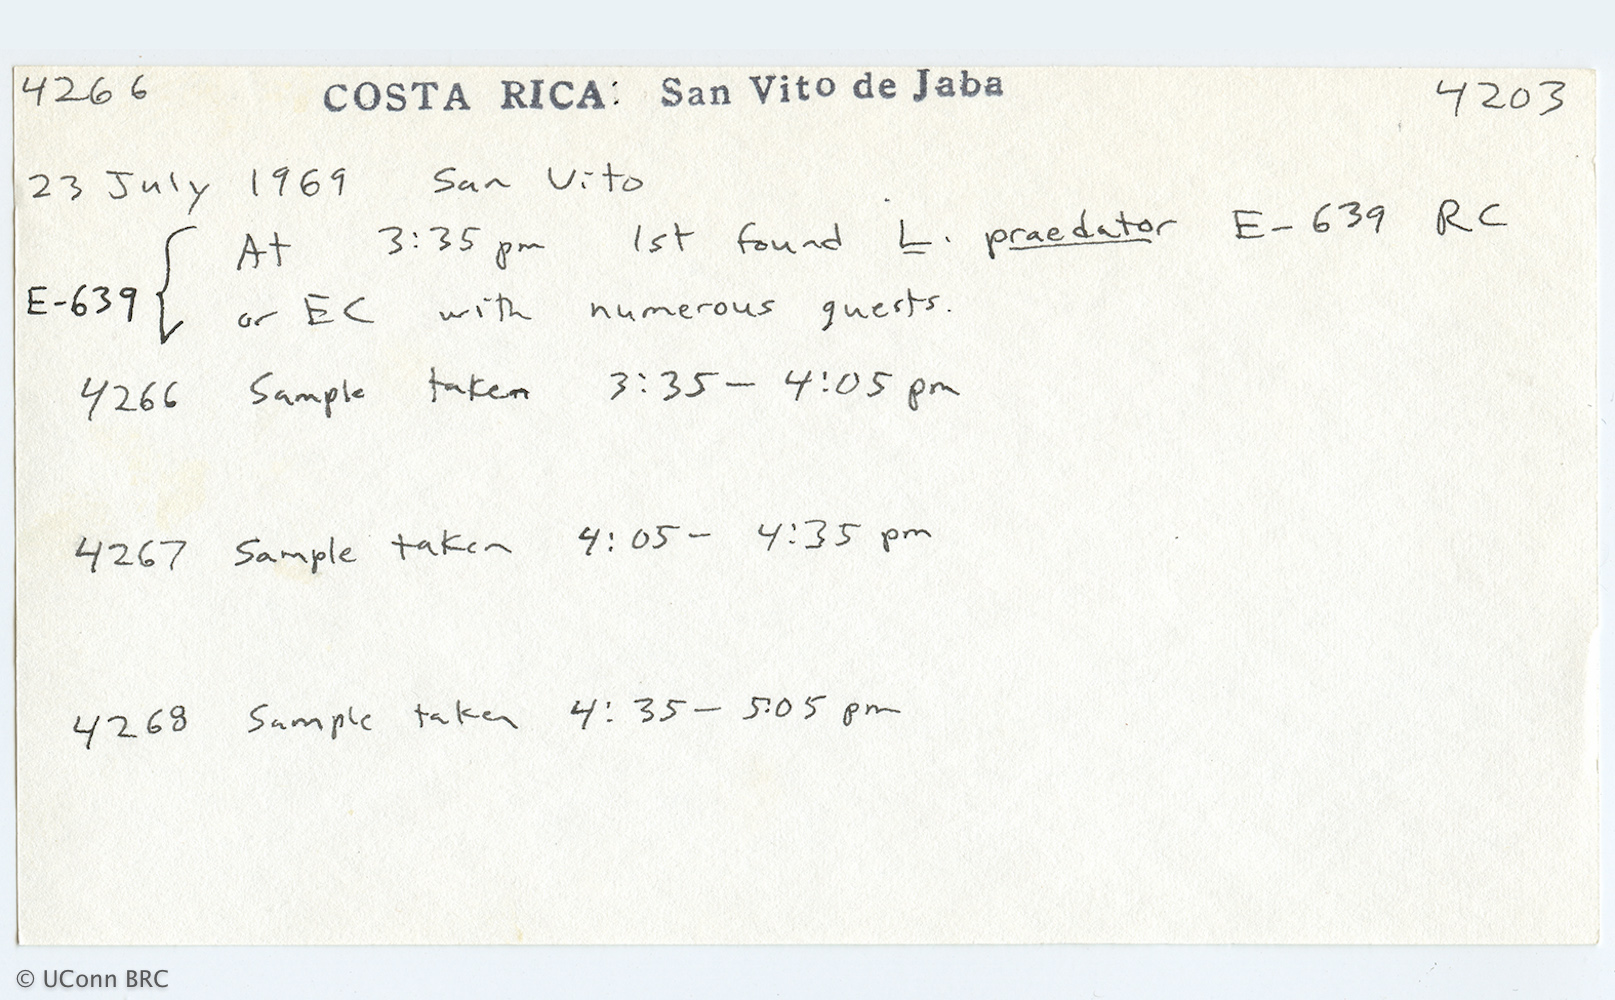 4266 COSTA RICA: San Vito de Jaba 4203
23 July 1969 San Vito
At 3:35 pm 1st found L. praedator E-639 RC
E-639 { or EC with numerous guests.
4266 Sample taken 3:35 - 4:05 pm
4267 Sample taken 4:05 - 4:35 pm
4268 Sample taken 4:35 - 5:05 pm
© UConn BRC